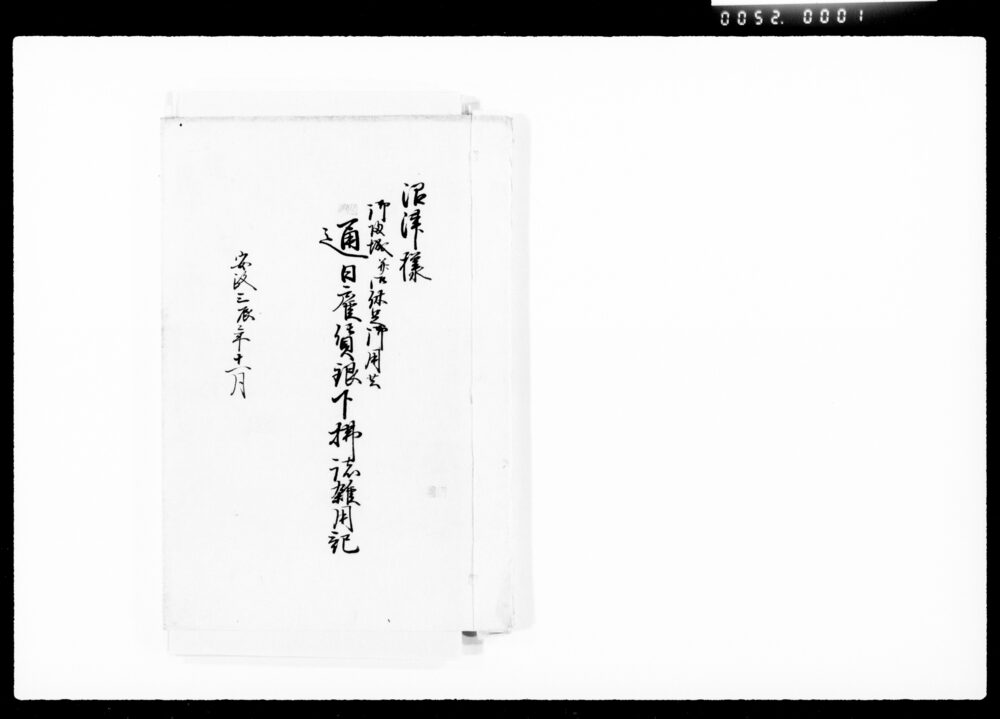 0052. 0001
沼津様
御収城并沼御足御用共
通日雇賃銀下払諸雑用記
安政三辰年十一月